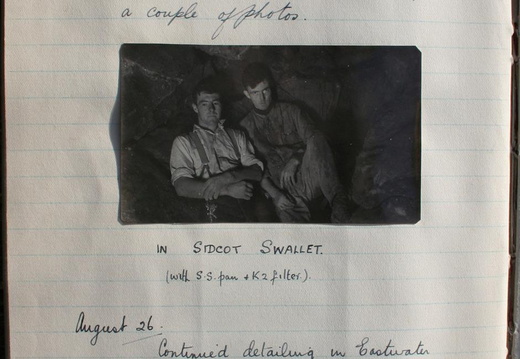 a couple of photos.
IN SIDCOT SWALLET.
(with S.S. pan + K2 filter.)
August 26.
Continued detailing in Eastwater